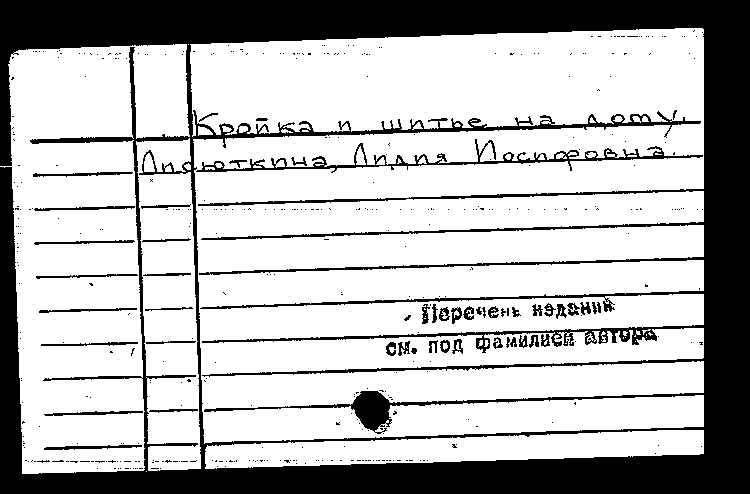 Кройка и шитье на дому.
Лидия Иосифовна.
Перечень изданий
см. под фамилией автора